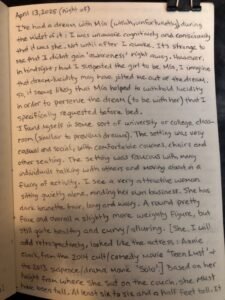 April 13, 2025 (night of)
I've had a dream with Mia (which, unfortunately) during
the midst of it; I was unaware cognitively and consciously
that it was she. Not until after I awoke. It's strange to
me that I didn't gain "awareness" right away. However,
in hindsight; had I suspected the girl to be Mia, I imagine
that dream-lucidity may have jolted me out of the dream.
so, it seems likely that Mia helped to withhold lucidity
in order to perserve the dream (to be with her) that I
specifically requested before bed.
I found myself in some sort of university or college class-
room (similar to previous dreams). The setting was very
casual and social, with comfortable couches, chairs and
other seating. The setting was raucous with many
individuals talking with others and moving about in a
flurry of activity. I see a very attractive woman
sitting quietly alone, minding her own business. She has
dark brunette hair, long and wavy. A round pretty
face and overall a slightly more weighty figure, but
still quite healthy and curvy/alluring. [She, I will
add retrospectively, looked like the actress: Annie
Clark, from the 2004 cult/comedy movie "Teen Lust" &
the 2013 suspence/drama movie "Solo".] Based on her
height from where she sat on the couch, she must
have been tall, at least six to six and a half feet tall. It